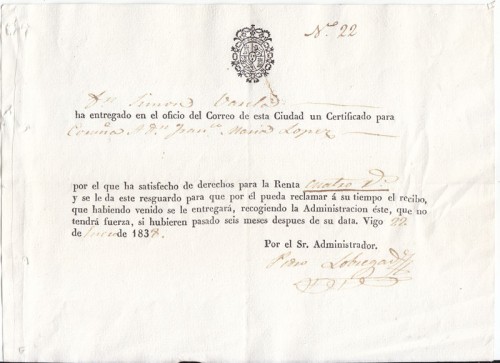 N.º 22
D.n Simon
ha entregado en el oficio del Correo de esta Ciudad un Certificado para
Coruña A D.n Fran.co Maria Lopez
por el que ha satisfecho de derechos para la Renta cuatro
y se le da este resguardo para que por él pueda reclamar á su tiempo el recibo,
que habiendo venido se le entregará, recogiendo la Administracion éste, que no
tendrá fuerza, si hubieren pasado seis meses despues de su data. Vigo 22
de de 183
Por el Sr. Administrador.
Pedro